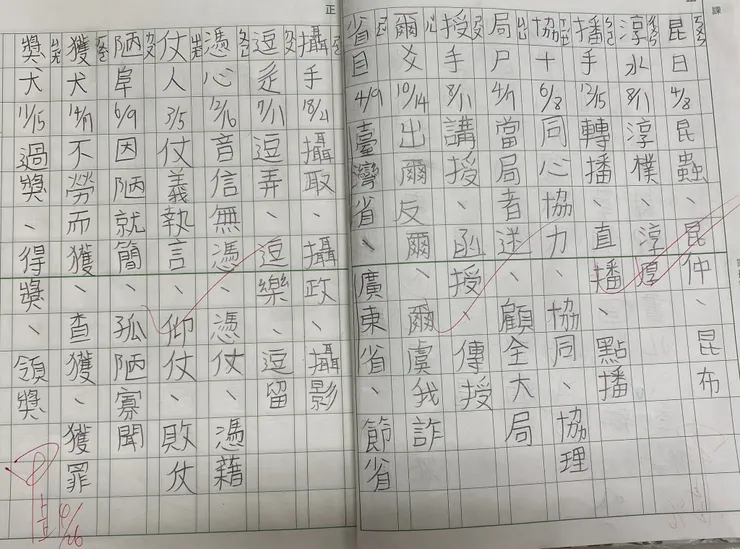 昆 日 4/8 昆蟲、昆仲、昆布
淳 水 8/11 淳樸、淳厚
播 手 12/15 轉播、直播、點播
協 十 6/8 同心協力、協同、協理
局 尸 4/7 當局者迷、顧全大局
授 手 8/11 講授、函授、傳授
爾 爻 10/14 出爾反爾、爾虞我詐
省 目 4/9 臺灣省、廣東省、節省
攝 手 18/21 攝取、攝政、攝影
逗 辵 7/11 逗弄、逗樂、逗留
憑 心 12/16 音信無憑、憑仗、憑藉
仗 人 3/5 仗義執言、仰仗、敗仗
陋 阜 6/9 因陋就簡、孤陋寡聞
獲 犬 14/17 不勞而獲、查獲、獲罪
獎 犬 11/15 過獎、得獎、領獎